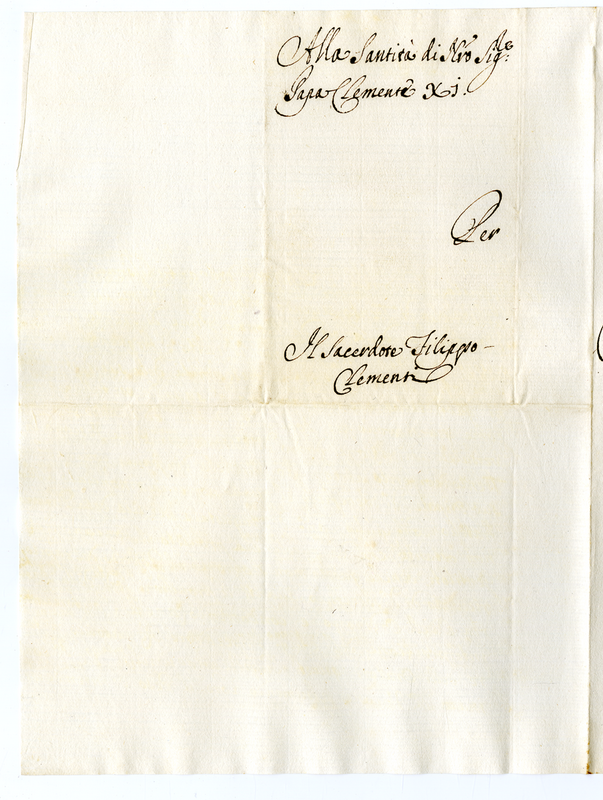 Alla Santità di Nro Sig:re
Papa Clemente XI.
Per
Il Sacerdote Filippo –
Clementi